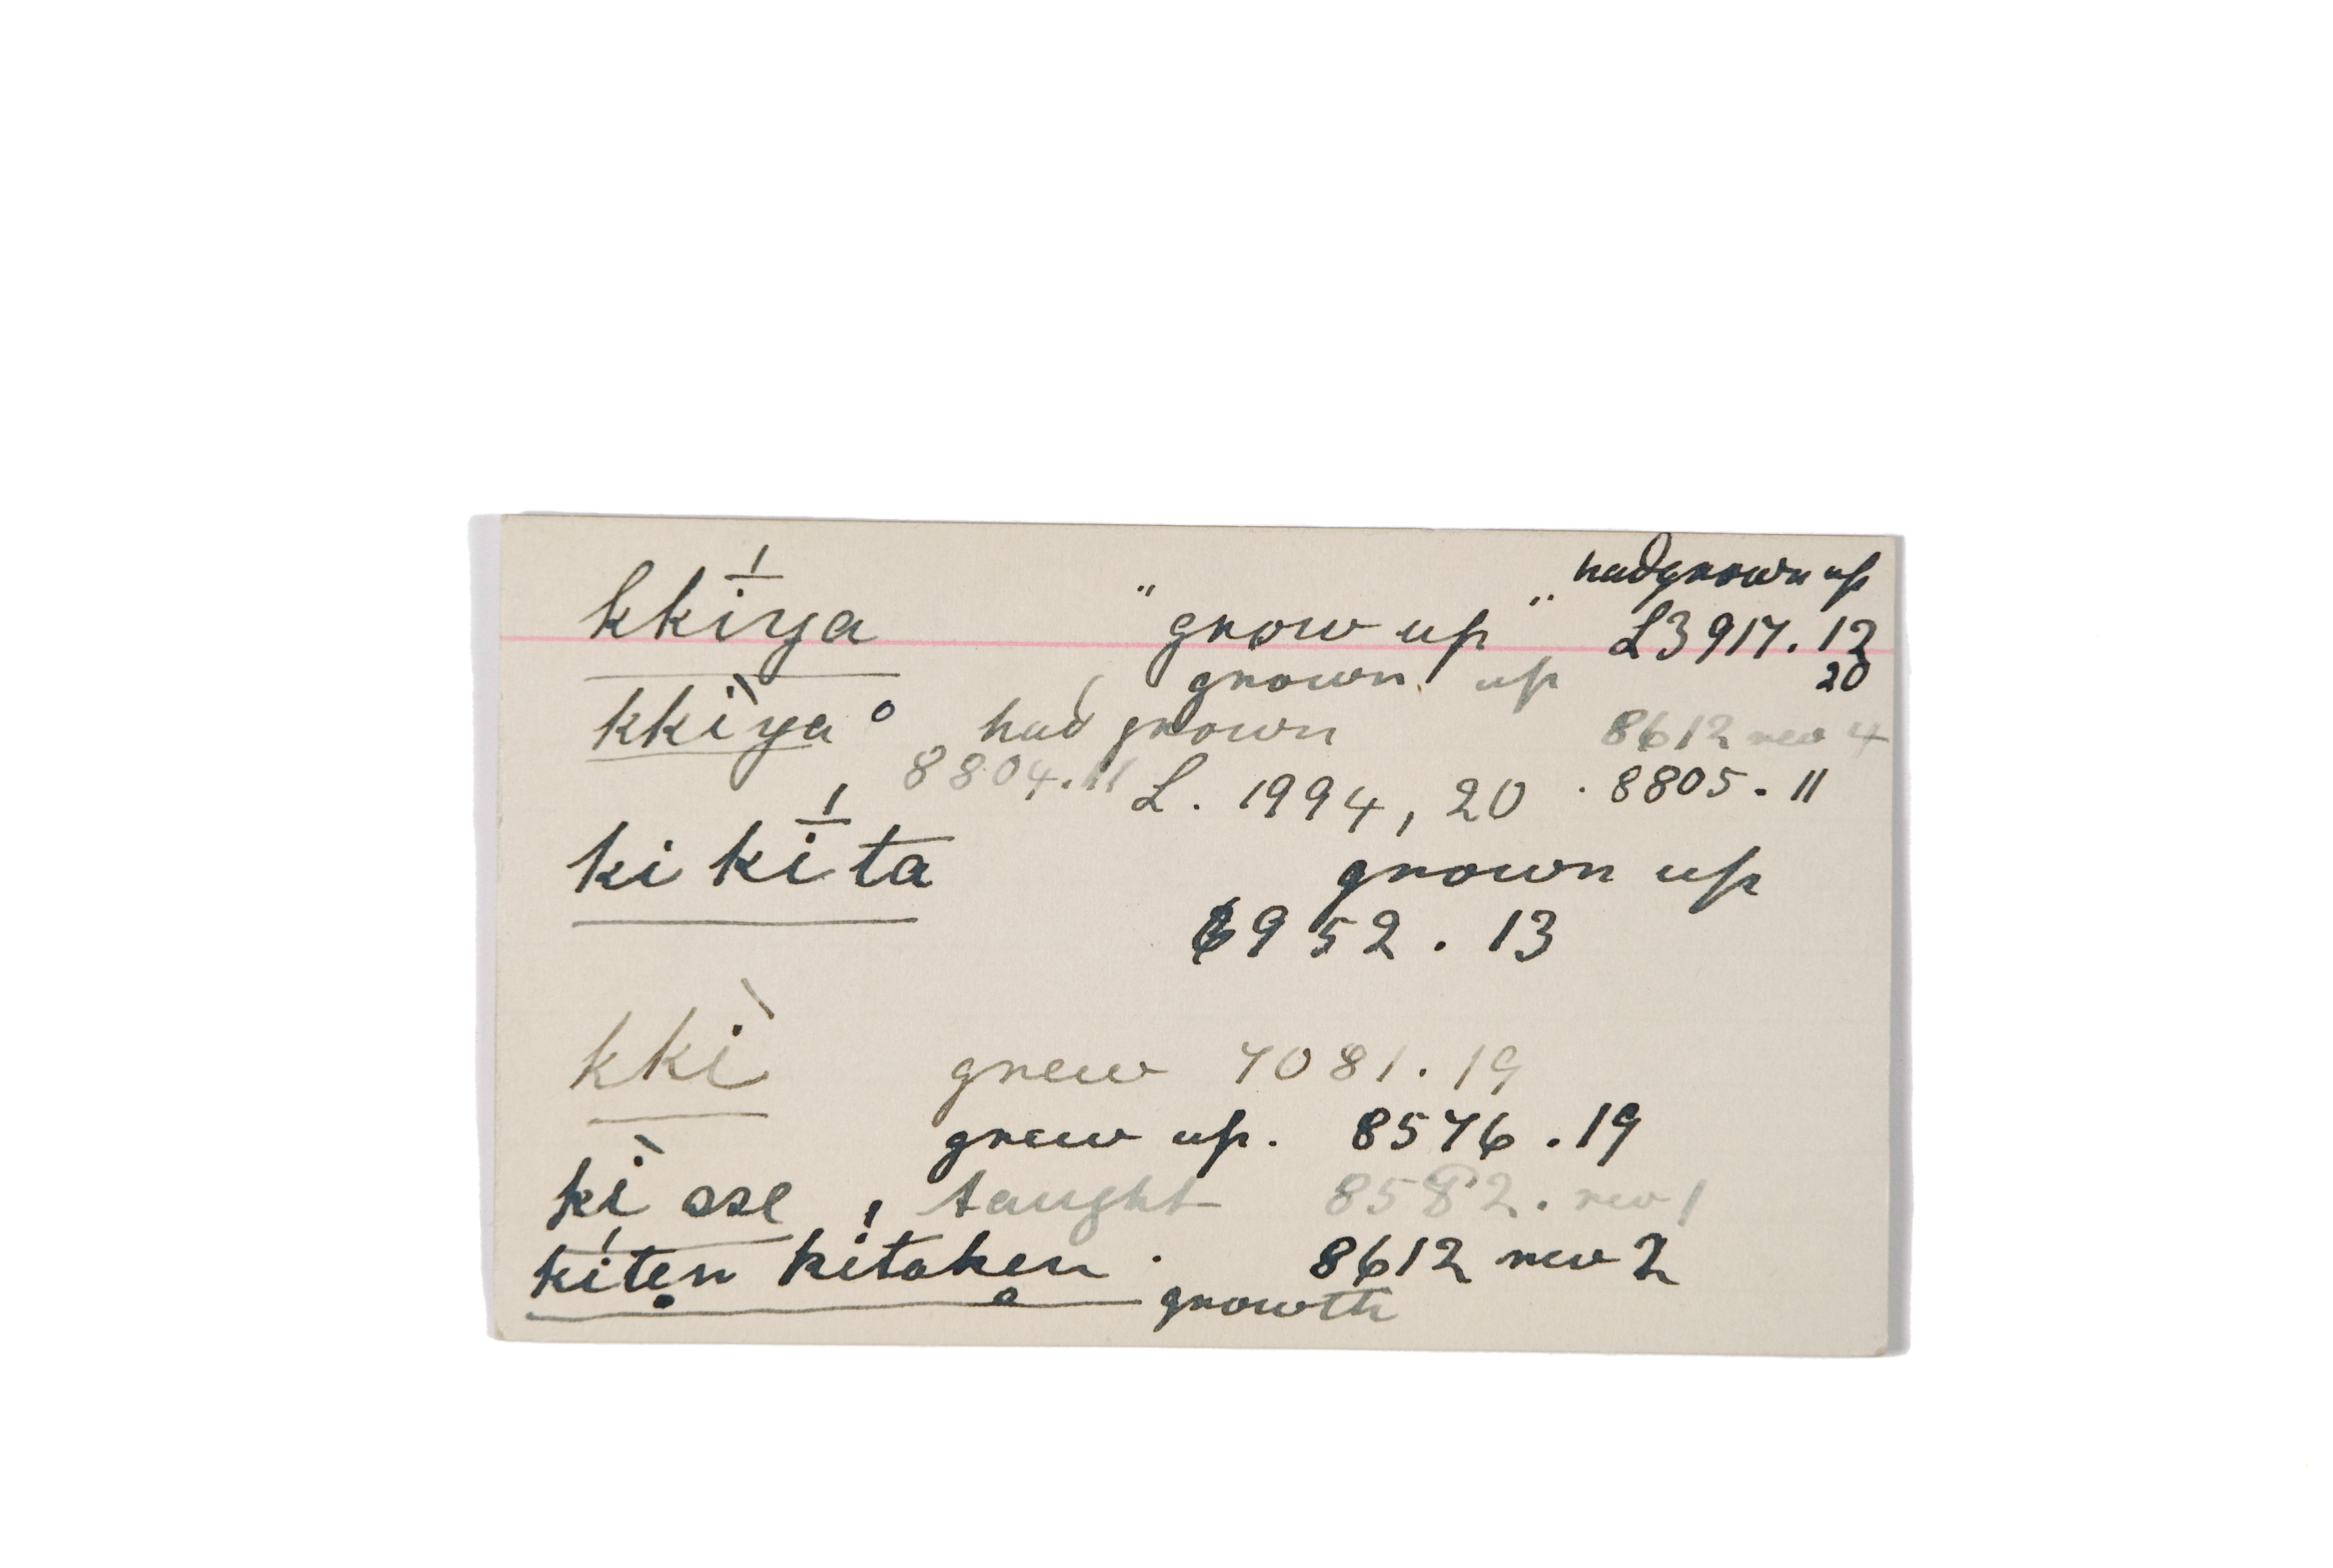 had grown up
kkī́ya "grow up" L3917.12
grown up 20
kkìya° had grown 8612 rev 4
8804.11 L. 1994, 20 · 8805.11
kikī́ta grown up
6952.13
kkì grew 7081.19
grew up. 8576.19
kì sse taught 8582. rev 1
kíten kítaken · 8612 rev 2
growth